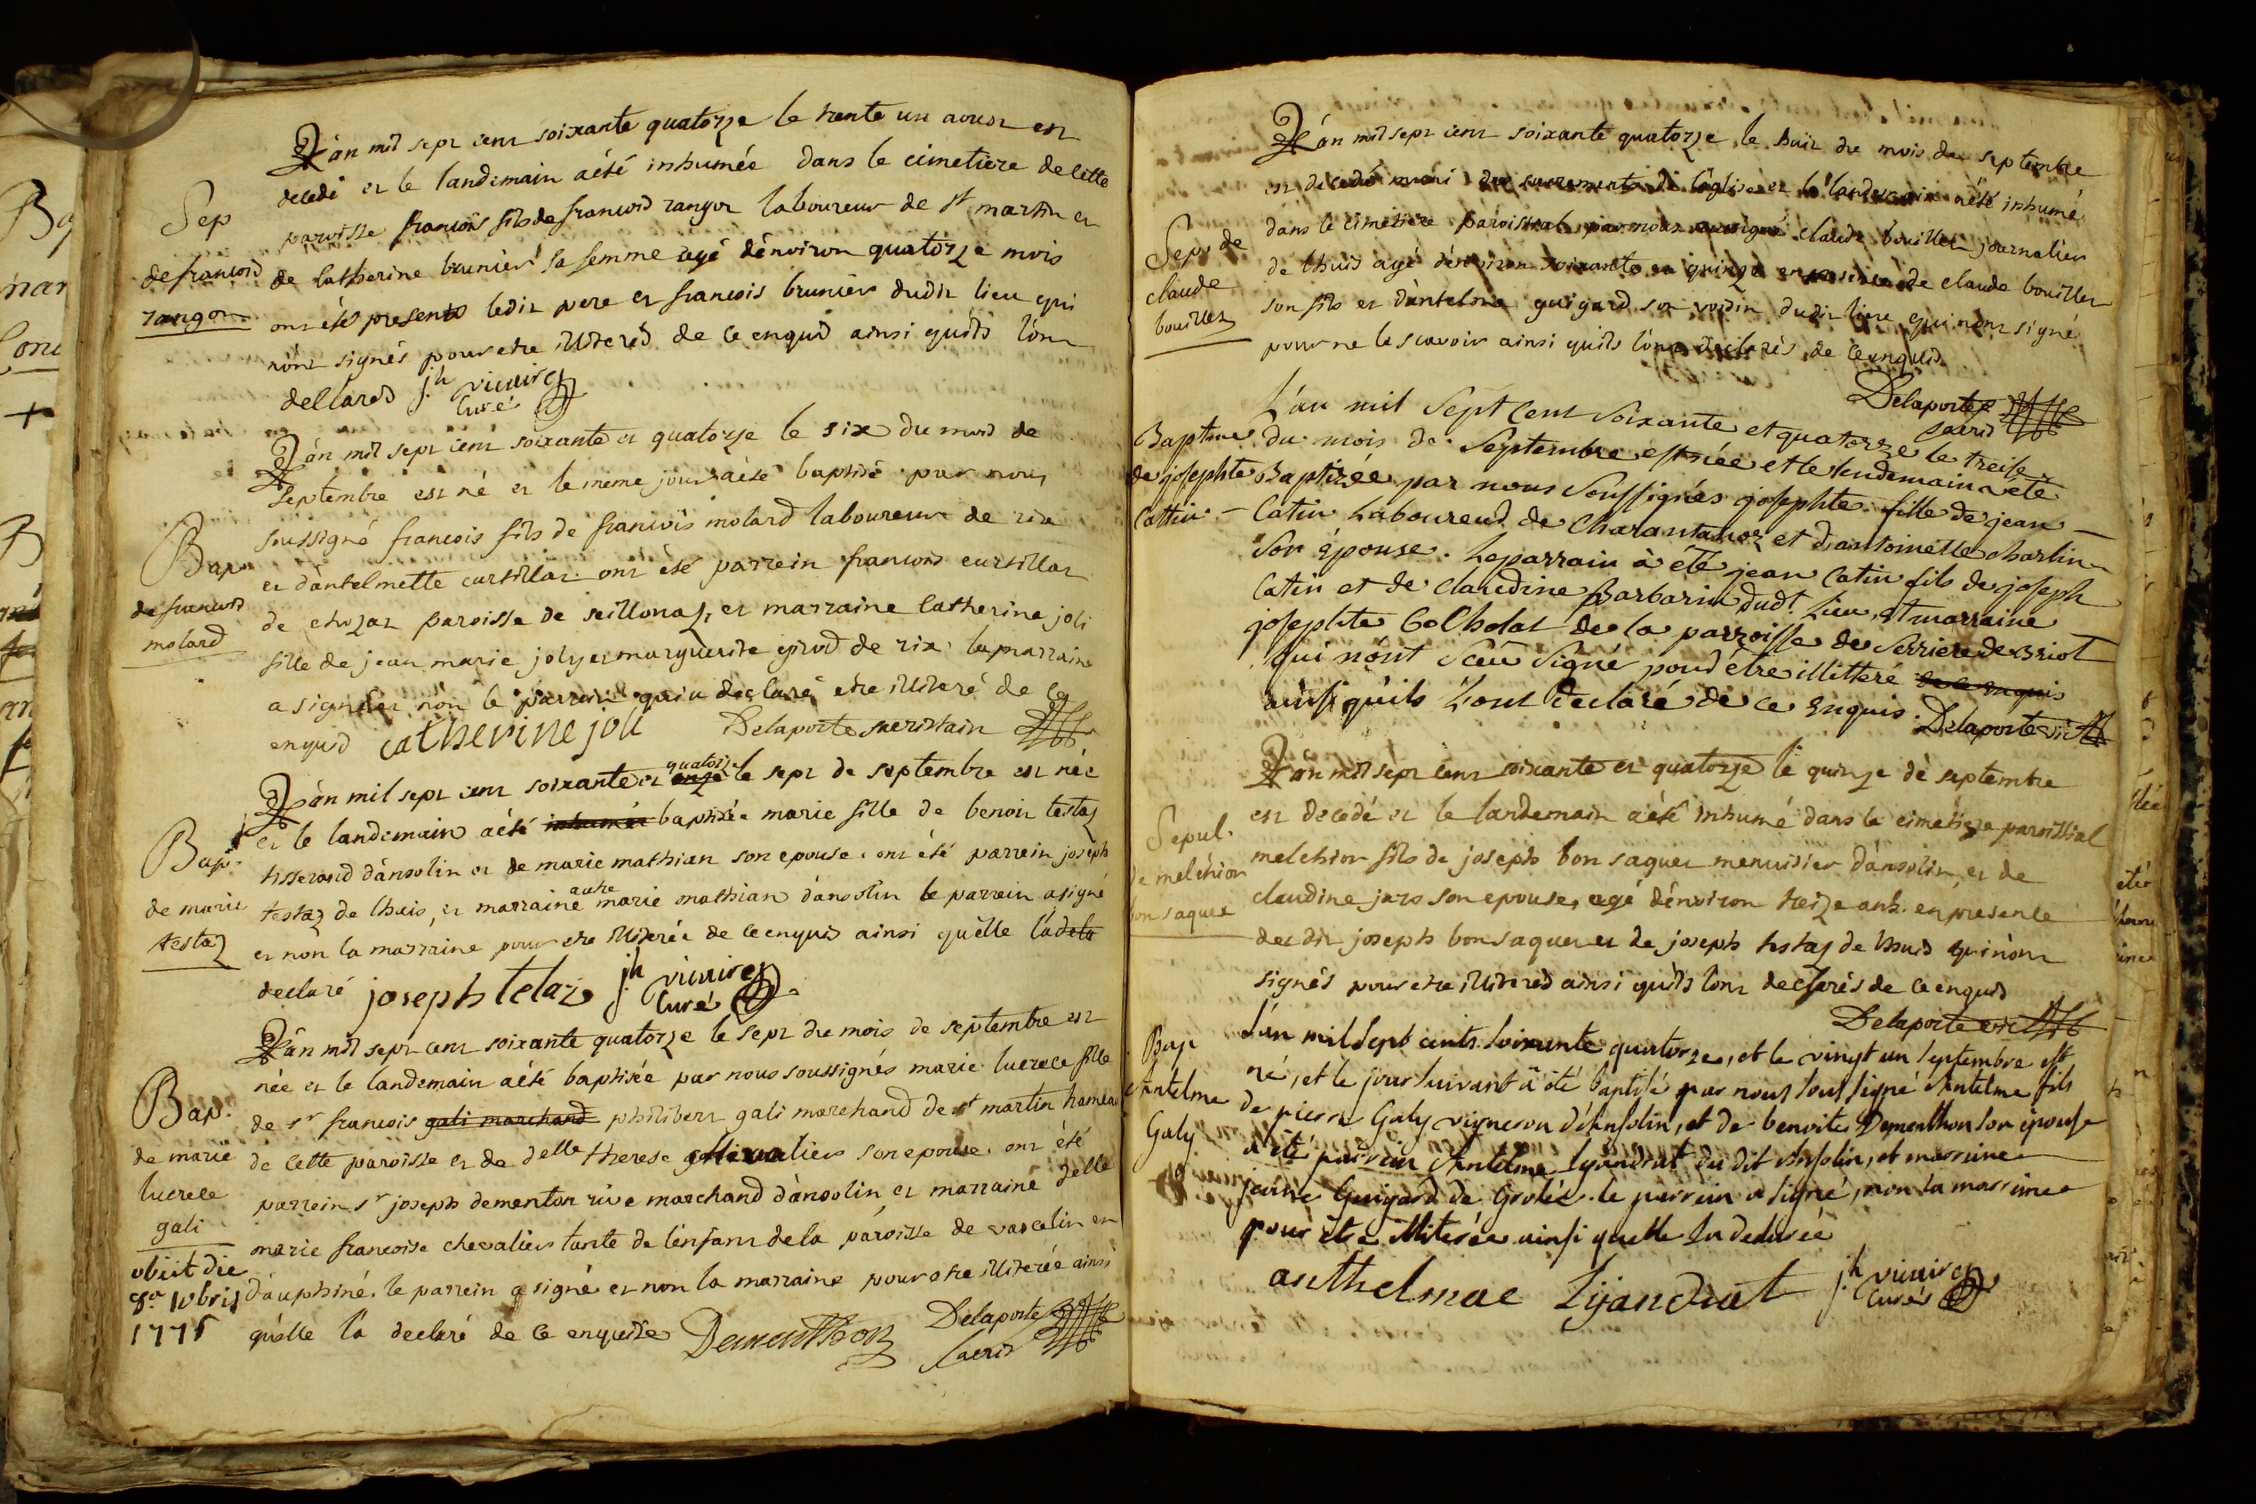 L'an mil sept cent soixante quatorze le trente un aoust est
decedé et le landemain a été inhumée dans le cimetiere de cette
Sep
paroisse francois fils de francois rangot laboureur de st martin et
de francois
de catherine brunier sa femme agé d'environ quatorze mois
rangot
ont étés presents ledit pere et francois brunier dudit lieu qui
n'ont signés pour etre illiterés de ce enquis ainsi quils l'ont
declarés jh vuirez
curé
L'an mil sept cent soixante et quatorze le six du mois de
septembre est né et le meme jour a été baptisé par nous
soussigné francois fils de francois molard laboureur de rix
Bap.
et d'antelmette curtillat. ont été parrein francois curtillat
de francois
de chozas paroisse de seillonaz, et marraine catherine joli
molard
fille de jean marie joly et marguerite girod de rix. la marraine
a signé et non le parrein qui a declaré etre illiteré de ce
enquis catherine joli Delaporte sacristain
L'an mil sept cent soixante et onze quatorze le sept de septembre est née
et le landemain a été inhumée baptisée marie fille de benoit testaz
Bap.
tisserand d'ansolin et de marie mathian son epouse. ont été parrein joseph
de marie
testaz de lhuis, et marraine autre marie mathian d'ansolin le parrein a signé
testaz
et non la marraine pour etre illiterée de ce enquis ainsi qu'elle l'a dela
declaré joseph tetaz jh vuirez
curé
L'an mil sept cent soixante quatorze le sept du mois de septembre est
née et le landemain a été baptisée par nous soussignés marie lucrece fille
Bap.
de sr francois gali marchand philibert gali marchand de st martin hameau
de marie
de cette paroisse et de delle therese chevalier son epouse. ont été
lucrece
parrein sr joseph dementon rive marchand d'ansolin et marraine delle
gali
marie francoise chevalier tante de l'enfant de la paroisse de vasselin en
obiit die
dauphiné. le parrein a signé et non la marraine pour etre illiterée ainsi
8a 10bris
1775
qu'elle l'a declaré de ce enquise Dementhon Delaporte
sacris
L'an mil sept cent soixante quatorze, le huit du mois de septembre
est decedé muni des sacrements de l'église et le landemain a été inhumé
dans le cimetiere paroissial par nous soussigné claude bouillet journalier
Sep. de
de lhuis agé d'environ soixante et quinze en presence de claude bouillet
claude
son fils et d'antelme guigard son voisin dudit lieu qui n'ont signé
bouillet
pour ne le scavoir ainsi quils l'ont declarés de ce enquis
Delaporte
sacris
L'an mil Sept Cent Soixante et quatorze le treise
Baptme
du mois de Septembre est née et le lendemain a été
de josephte
Baptizée par nous Soussignés josephte fille de jean
Cattin
Catin Laboureur de Charantanoz et d'antoinette charlin
Son Épouse. Le parrain à été jean Catin fils de joseph
Catin et de Claudine Barbarin dudt Lieu, et marraine
josephte Cocholat de la parroisse de Serriere de Briot
qui n'ont Sceû Signé pour être illitteré de ce enquis
ainsi quils L'ont declaré de ce Enquis. Delaporte vic
L'an mil sept cent soixante et quatorze le quinze de septembre
est decedé et le landemain a été inhumé dans le cimetiere paroissial
Sepul.
melchior fils de joseph bon saquet menuisier d'ansolin et de
de melchior
claudine jars son epouse, agé d'environ treize ans. en presence
bon saquet
dudit joseph bonsaquet et de joseph testaz de lhuis qui n'ont
signés pour etre illiterés ainsi quils l'ont declarés de ce enquis
Delaporte vic
L'an mil sept cents soixante quatorze, et le vingt un septembre est
Bap
né, et le jour suivant a été baptisé par nous soussigné Antelme fils
Antelme
de pierre Galy vigneron d'Ansolin, et de benoite Dementhon son épouse
Galy
a été parrein Antelme lyandrat du dit Ansolin, et marraine
jeanne Guigard de Groléé. le parrein a signé, non la marraine
pour etre illiterée ainsi quelle l'a declarée
anthelmae Lijandrat jh vuirez
curé